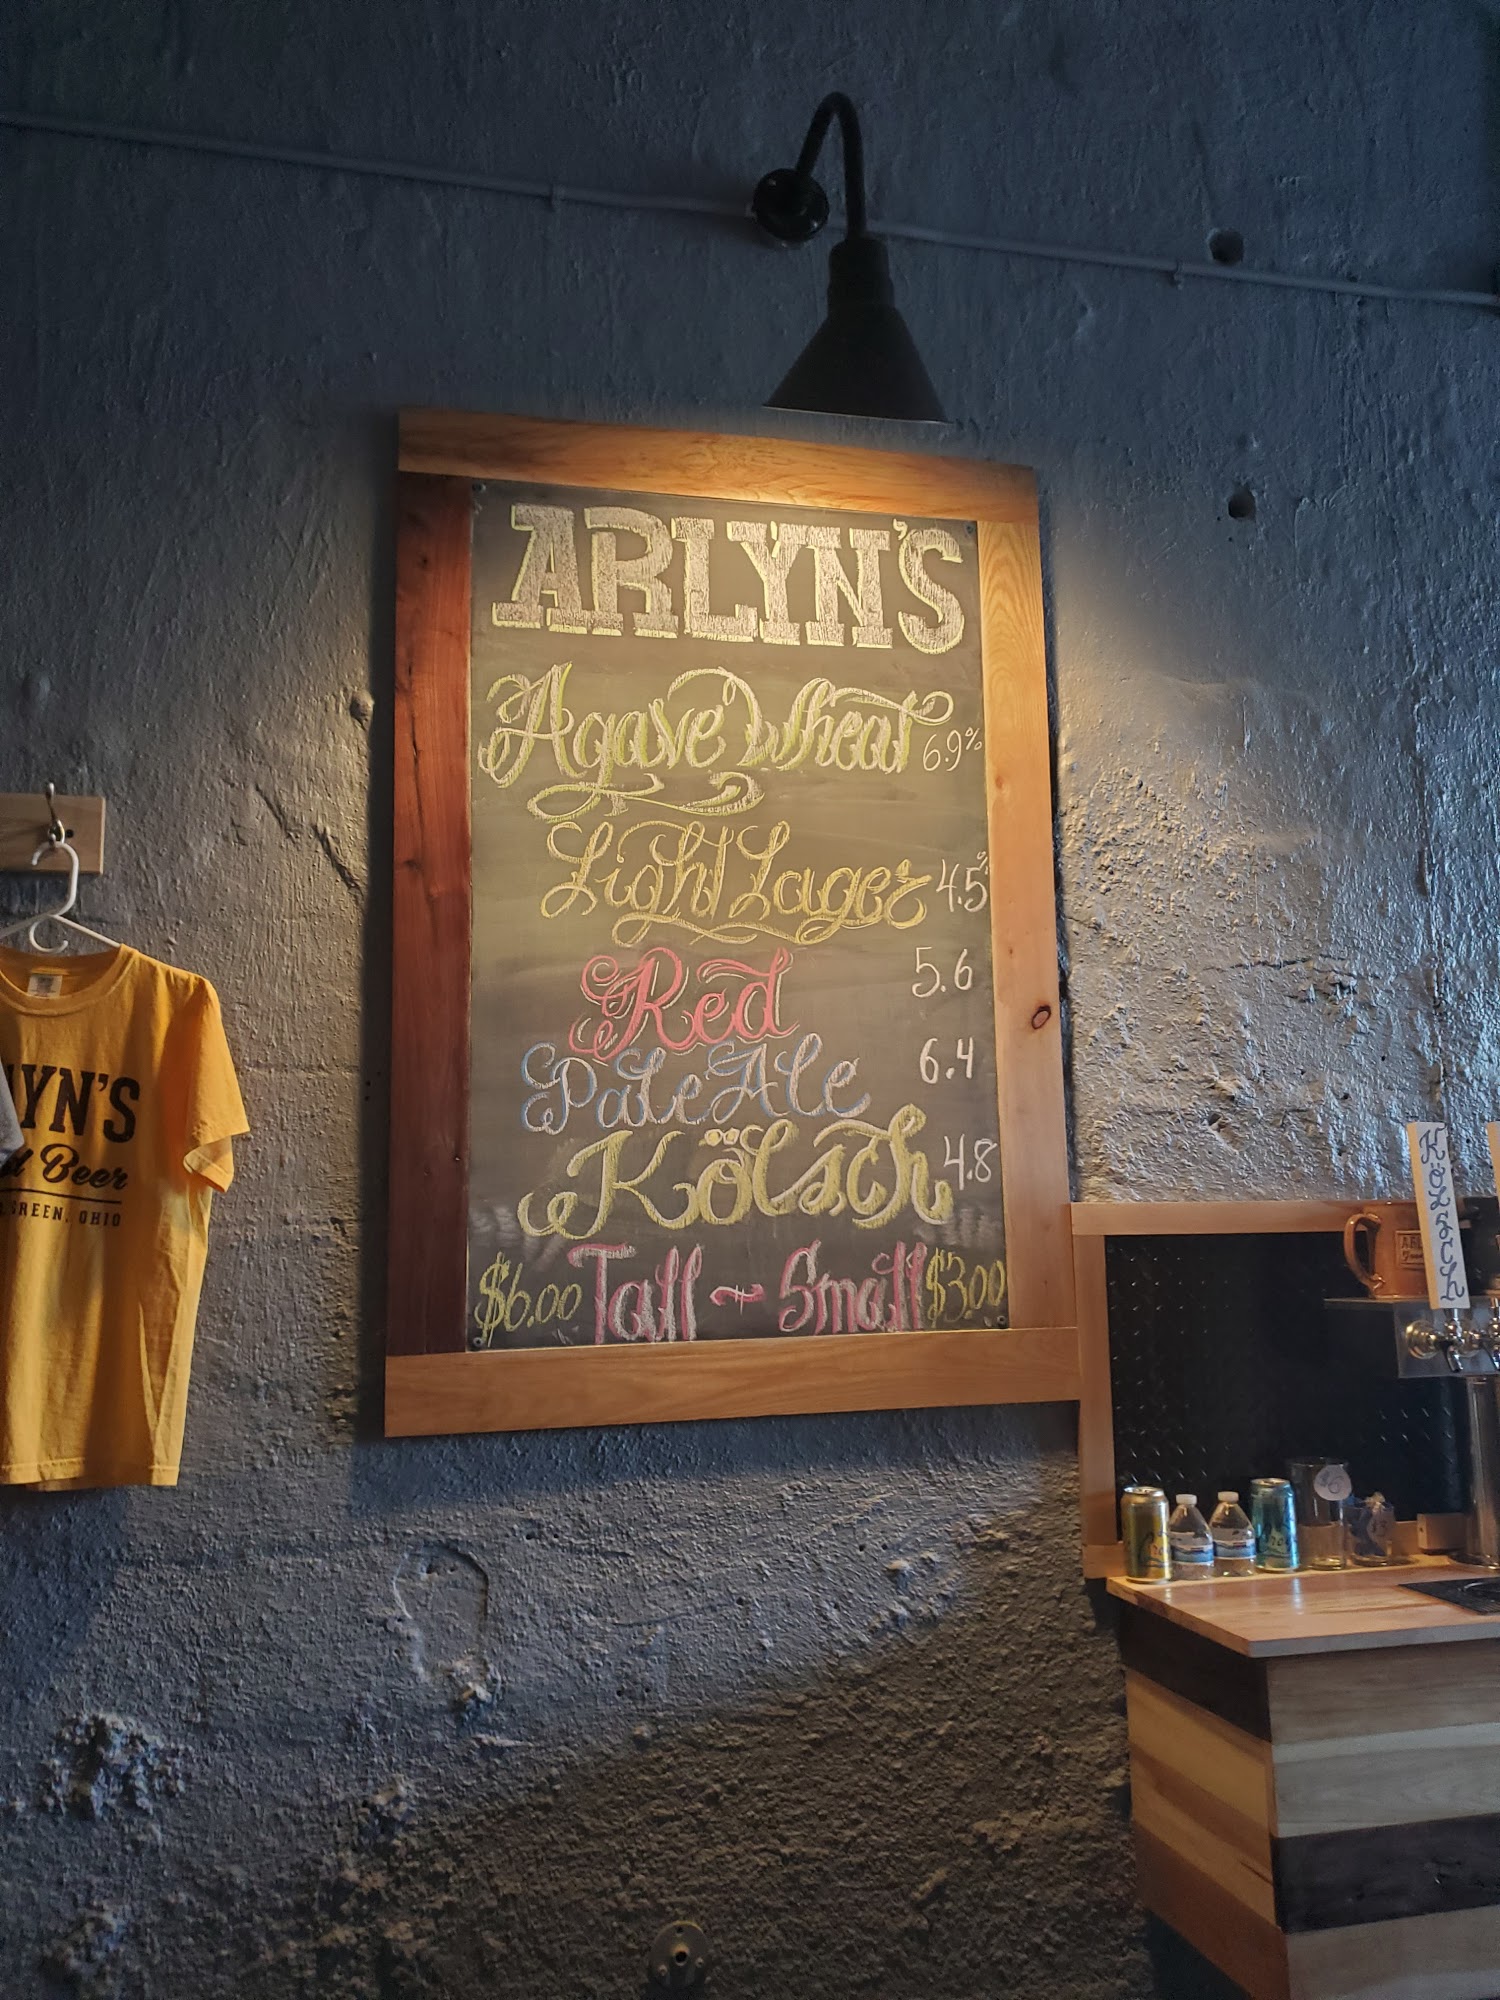 ARLYN'S
Agave Wheat 6.9%
Light Lager 4.5%
Red 5.6
Pale Ale 6.4
Kölsch 4.8
$6.00 Tall ~ Small $3.00
LYN'S
d Beer
GREEN, OHIO
KÖLSCH